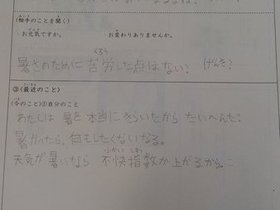 (相手のことを聞く)
お元気ですか。 お変わりありませんか。
暑さのために苦労した点はない? げんき?
③〈最近のこと〉
(今のこと)①自分のこと
あたしは 暑さ 本当に きらいだから たいへんだ。
暑かったら、何もしたくないなる。
天気が 暑いなら 不快指数が上がるから…